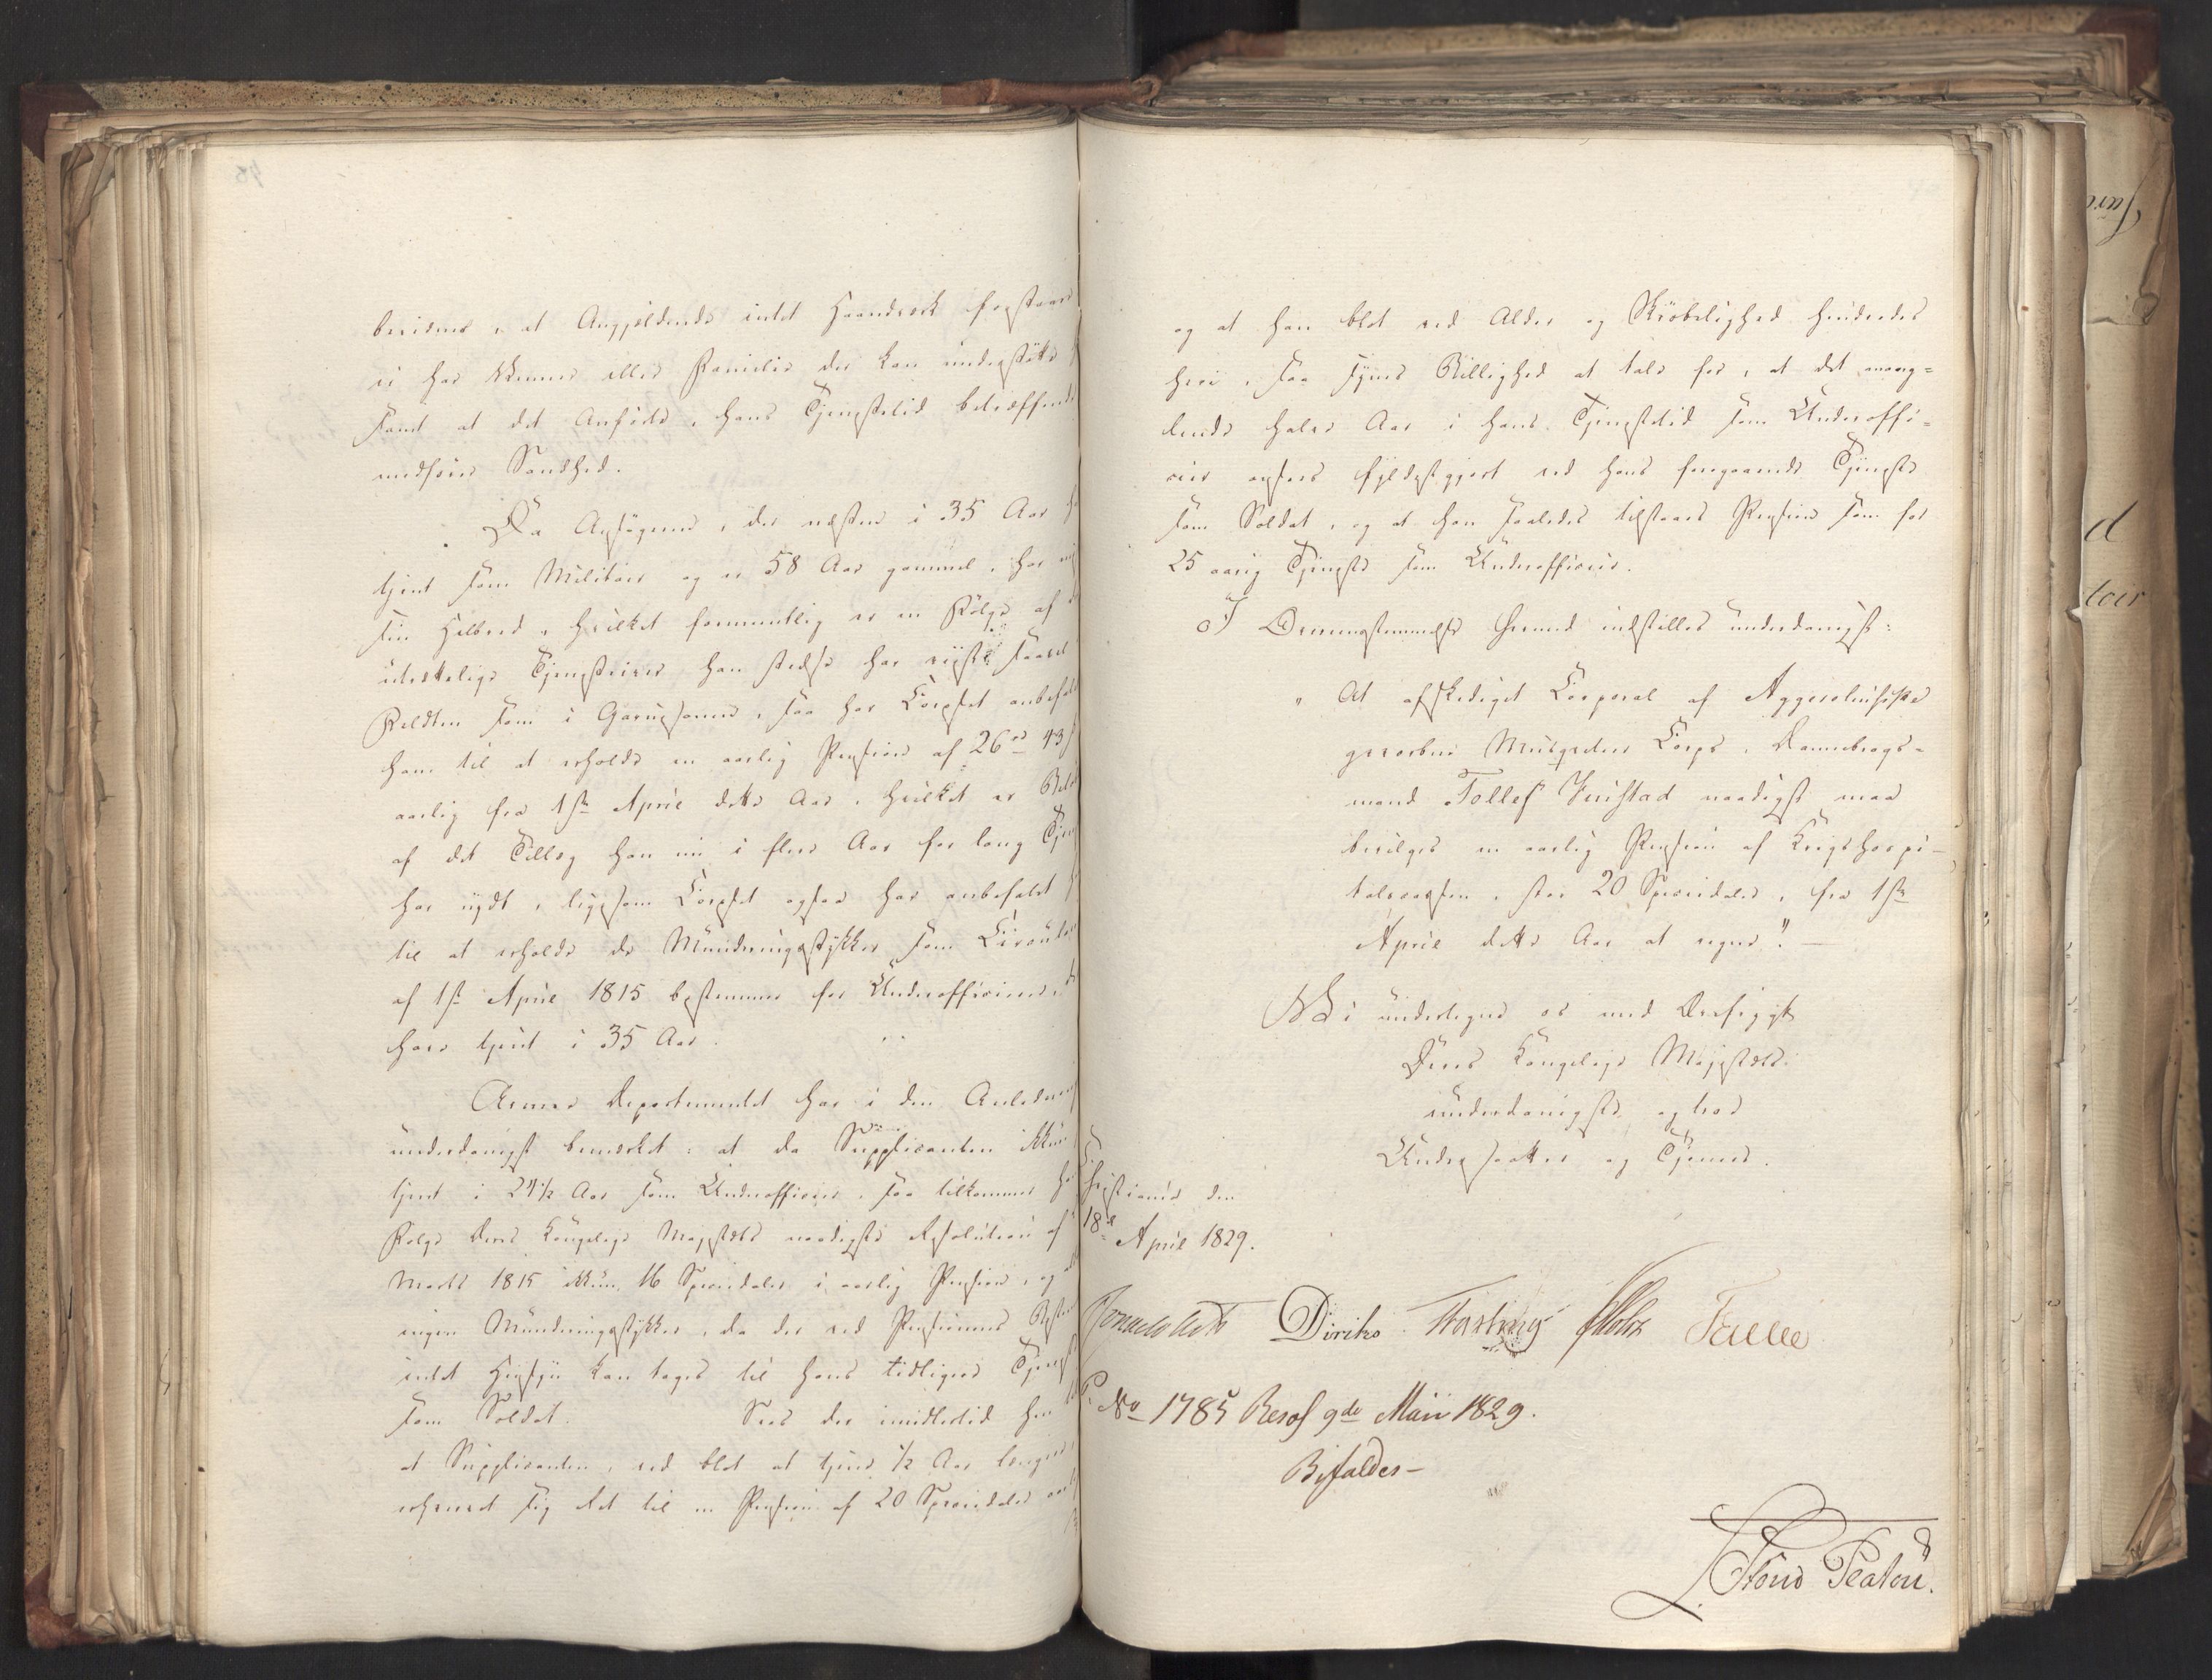 bevidner, at Angjeldende intet Haandverk forstaaer
ei har Venner eller Familie der kan understøtte
samt at det Anførte, hans Tjenestetid betræffende
medfører Sandhed.
Da Ansøgeren, der næsten i 35 Aar
tjent som Militair og er 58 Aar gammel, har
sin Helbred, hvilket formeentlig er en Følge af
udskelige Tjenesteiver han stedse har viist saavel
Feldten som i Garnisonen, saa har Corpset anbefalet
ham til at erholde en aarlig Pension af 26 43
aarlig fra 1ste April dette Aar, hvilket er
af det Tillæg han nu i flere Aar for lang
har nydt, ligesom Corpset ogsaa har anbefalet
til at erholde de Munderingsstykker som Circulaire
af 1ste April 1815 bestemmer for Underofficierer,
have tjent i 35 Aar.
Armee Departementet har i den Anledning
underdanigst bemærket: at da Supplicanten ikkun
tjent i 24½ Aar som Underofficier, saa tilkommer
Følge Deres Kongelige Majestæts naadigste Resolution af
Marts 1815 ikkun 16 Speciedaler i aarlig Pension, og
ingen Munderingsstykker, da der ved Pensionens
intet Hensyn kan tages til hans tidligere Tjeneste
som Soldat. Saa der imidlertid
at Supplicanten, ved blot at tjene ½ Aar længere,
erhvervet sig Ret til en Pension af 20 Speciedaler
48
og at han blot ved Alder og Skrøbelighed hindredes
heri, saa synes Billighed at tale for, at det mang=
lende halve Aar i hans Tjenestetid som Underoffi=
cier ansees fyldestgjort ved hans foregaaende Tjeneste
som Soldat, og at han saaledes tilstaaes Pension som for
25 aarig Tjeneste som Underofficier.
I Overeensstemmelse hermed indstilles underdanigst:
„At afskediget Corporal af Aggershuusiske
gevorbne Musqueteer Corps, Dannebrogs=
mand Tollef naadigst maa
bevilges en aarlig Pension af Krigshospi=
talscassen, stor 20 Speciedaler, fra 1ste
April dette Aar at regne." —
Vi undertegne os med Ærefrygt
Deres Kongelige Majestæts
underdanigste og troe
Undersaatter og Tjenere.
Christiania den
18de April 1829.
Diriks Fasting Holst
P. No 1785 Resol 9de Mai 1829.
Bifaldes –
Platou.